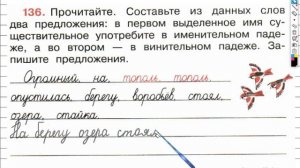 136. Прочитайте. Составьте из данных слов
два предложения: в первом выделенное имя су-
ществительное употребите в именительном паде-
же, а во втором — в винительном падеже. За-
пишите предложения.
Огромный, на, тополь, тополь,
опустилась, берегу, воробьёв, стоял,
озера, стайка.
На берегу озера стоял